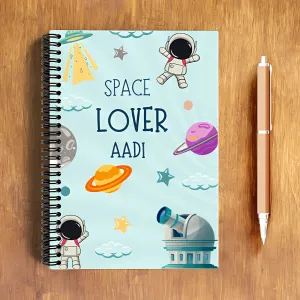 SPACE
LOVER
AADI